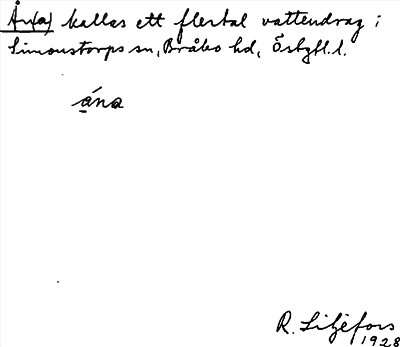 Ån(a) kallas ett flertal vattendrag i
Simonstorps sn, Bråbo hd, Östgtl.l.
ána
R. Liljefors
1928